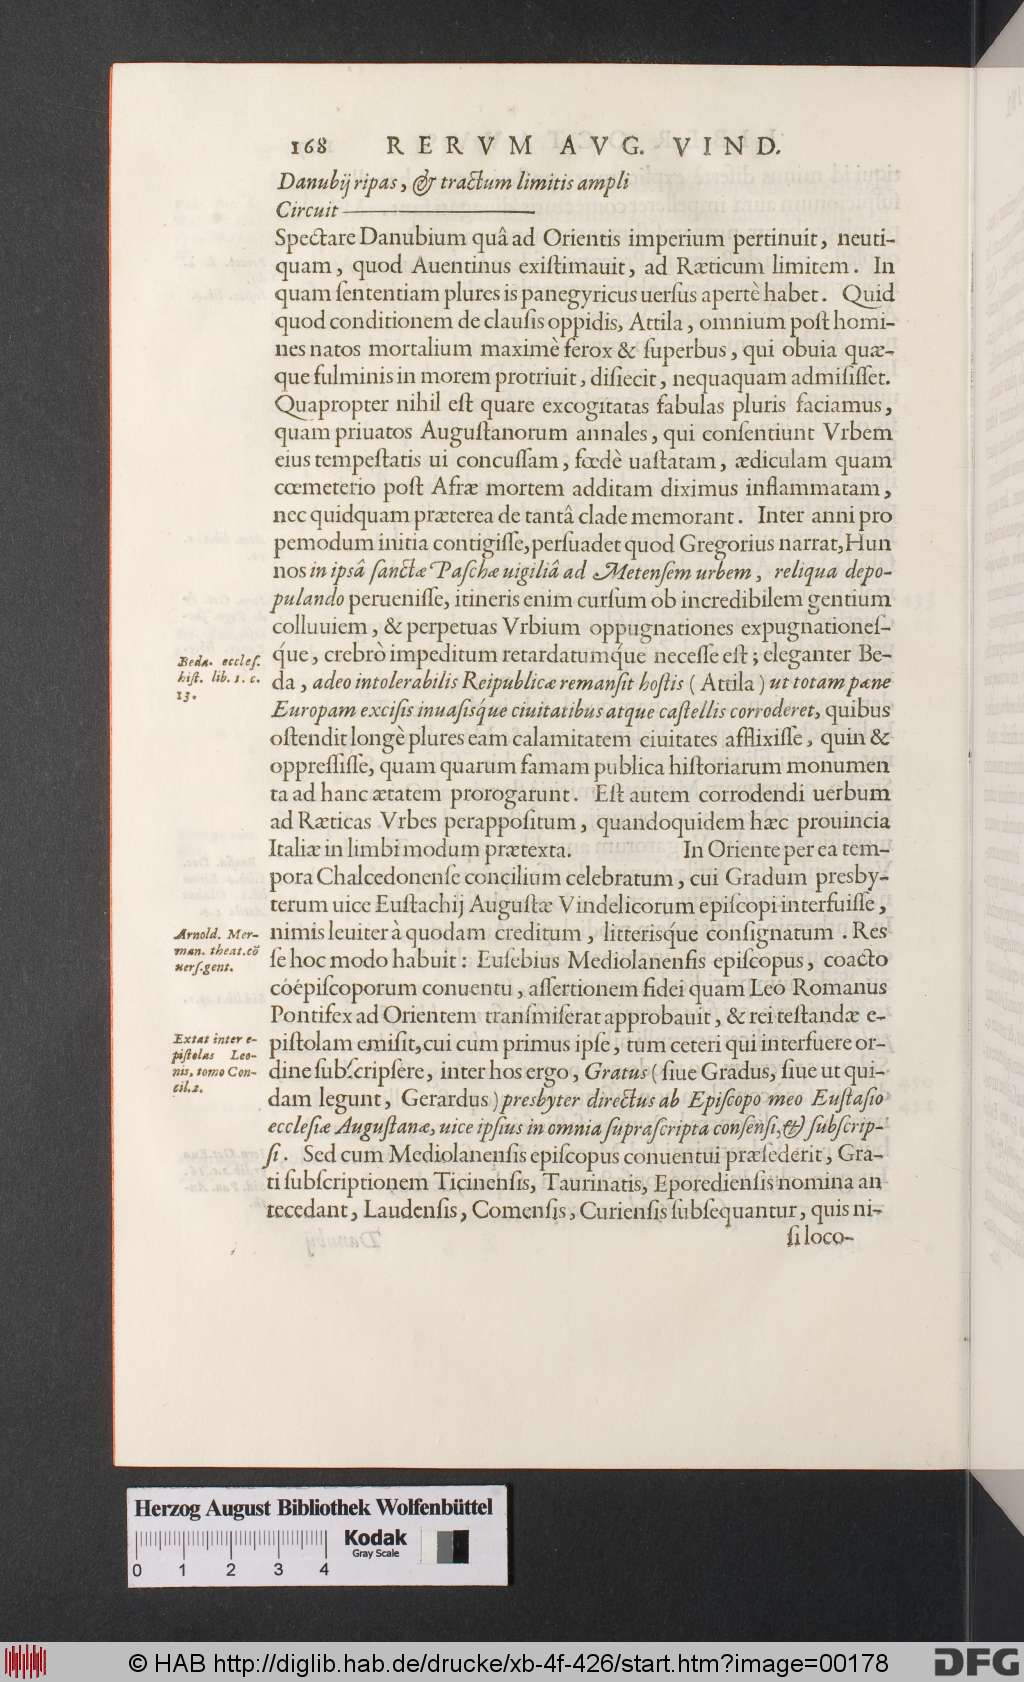 168 RERVM AVG. VIND.
Danubij ripas, & tractum limitis ampli
Circuit
Spectare Danubium quâ ad Orientis imperium pertinuit, neuti-
quam, quod Auentinus exiſtimauit, ad Ræticum limitem. In
quam ſententiam plures is panegyricus uerſus apertè habet. Quid
quod conditionem de clauſis oppidis, Attila, omnium poſt homi-
nes natos mortalium maximè ferox & ſuperbus, qui obuia quæ-
que fulminis in morem protriuit, diſiecit, nequaquam admiſiſſet.
Quapropter nihil eſt quare excogitatas fabulas pluris faciamus,
quam priuatos Auguſtanorum annales, qui conſentiunt Vrbem
eius tempeſtatis ui concuſſam, fœdè uaſtatam, ædiculam quam
cœmeterio poſt Afræ mortem additam diximus inflammatam,
nec quidquam præterea de tantâ clade memorant. Inter anni pro
pemodum initia contigiſſe, perſuadet quod Gregorius narrat, Hun
nos in ipsâ ſanctæ Paſchæ uigiliâ ad Metenſem urbem, reliqua depo-
pulando perueniſſe, itineris enim curſum ob incredibilem gentium
colluuiem, & perpetuas Vrbium oppugnationes expugnationeſ-
q́ue, crebrò impeditum retardatumq́ue neceſſe eſt; eleganter Be-
da, adeo intolerabilis Reipublicæ remanſit hoſtis (Attila) ut totam pæne
Europam exciſis inuaſisq́ue ciuitatibus atque caſtellis corroderet, quibus
oſtendit longè plures eam calamitatem ciuitates afflixiſſe, quin &
oppreſſiſſe, quam quarum famam publica hiſtoriarum monumen
ta ad hanc ætatem prorogarunt. Eſt autem corrodendi uerbum
ad Ræticas Vrbes perappoſitum, quandoquidem hæc prouincia
Italiæ in limbi modum prætexta. In Oriente per ea tem-
pora Chalcedonenſe concilium celebratum, cui Gradum presby-
terum uice Euſtachij Auguſtæ Vindelicorum epiſcopi interfuiſſe,
nimis leuiter à quodam creditum, litterisq́ue conſignatum. Res
ſe hoc modo habuit: Euſebius Mediolanenſis epiſcopus, coacto
cóepiſcoporum conuentu, aſſertionem fidei quam Leo Romanus
Pontifex ad Orientem tranſmiſerat approbauit, & rei teſtandæ e-
piſtolam emiſit, cui cum primus ipſe, tum ceteri qui interfuere or-
dine ſubſcripſere, inter hos ergo, Gratus (ſiue Gradus, ſiue ut qui-
dam legunt, Gerardus) presbyter directus ab Epiſcopo meo Euſtaſio
eccleſiæ Auguſtanæ, uice ipſius in omnia ſupraſcripta conſenſi, & ſubſcrip-
ſi. Sed cum Mediolanenſis epiſcopus conuentui præſederit, Gra-
ti ſubſcriptionem Ticinenſis, Taurinatis, Eporedienſis nomina an
tecedant, Laudenſis, Comenſis, Curienſis ſubſequantur, quis ni-
ſi loco-
Beda. eccleſ.
hiſt. lib. 1. c.
13.
Arnold. Mer-
man. theat. cō
uerſ. gent.
Extat inter e-
piſtolas Leo-
nis, tomo Con-
cil. 2.
Herzog August Bibliothek Wolfenbüttel
0 1 2 3 4
Kodak
Gray Scale
© HAB http://diglib.hab.de/drucke/xb-4f-426/start.htm?image=00178
DFG